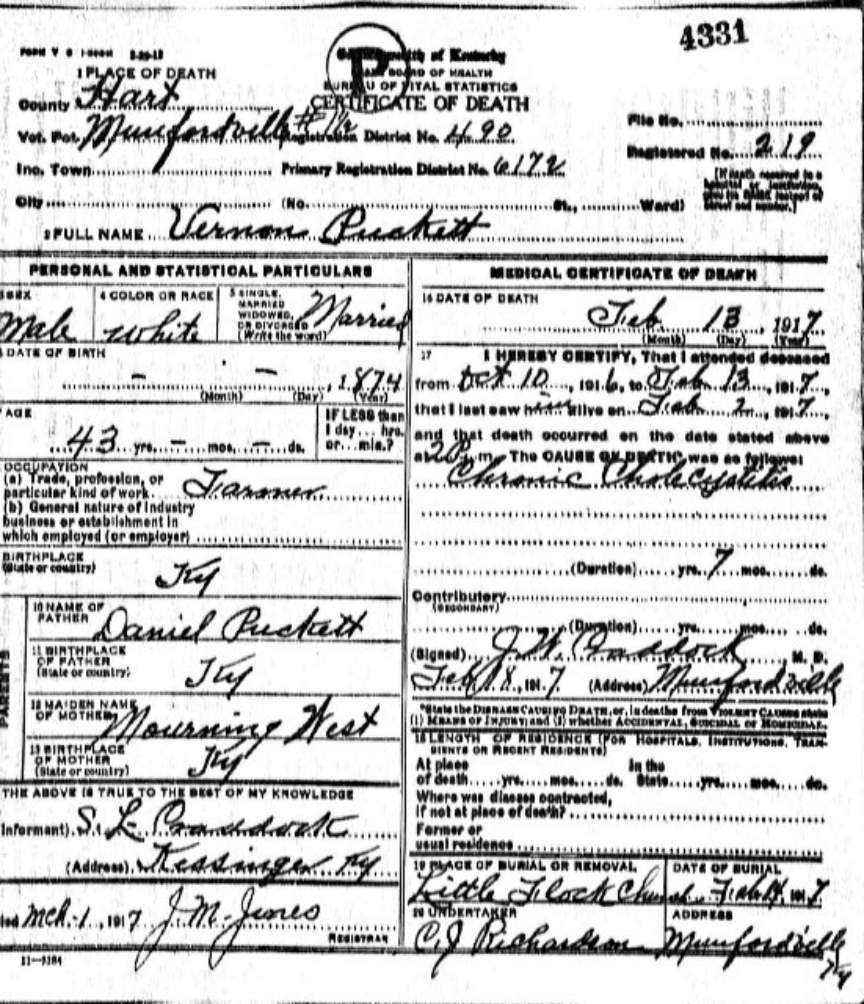 4331
FORM V S 1-500M 2-20-12
Commonwealth of Kentucky
STATE BOARD OF HEALTH
BUREAU OF VITAL STATISTICS
CERTIFICATE OF DEATH
1 PLACE OF DEATH
County Hart
Vot. Pct. Munfordville #1½ Registration District No. 490
File No.
Registered No. 219
Inc. Town Primary Registration District No. 6172
[If death occurred in a hospital or institution, give its NAME instead of street and number.]
City (No. St., Ward)
2 FULL NAME Vernon Puckett
PERSONAL AND STATISTICAL PARTICULARS
SEX Male
4 COLOR OR RACE White
5 SINGLE, MARRIED WIDOWED, OR DIVORCED (Write the word) Married
DATE OF BIRTH
— — , 1874
(Month) (Day) (Year)
AGE
43 yrs. — mos. — ds.
IF LESS than 1 day ... hrs. or ... min.?
OCCUPATION
(a) Trade, profession, or particular kind of work. Farmer
(b) General nature of industry
business or establishment in
which employed (or employer)
BIRTHPLACE
(State or country) Ky
PARENTS
10 NAME OF FATHER Daniel Puckett
11 BIRTHPLACE OF FATHER (State or country) Ky
12 MAIDEN NAME OF MOTHER Mourning West
13 BIRTHPLACE OF MOTHER (State or country) Ky
THE ABOVE IS TRUE TO THE BEST OF MY KNOWLEDGE
(Informant) S. L. Craddock
(Address) Kessinger Ky
Mch-1, 1917 J. M. Jones
REGISTRAR
11—3184
MEDICAL CERTIFICATE OF DEATH
16 DATE OF DEATH
Feb 13, 1917
(Month) (Day) (Year)
17 I HEREBY CERTIFY, That I attended deceased
from Oct 10, 1916, to Feb 13, 1917,
that I last saw him alive on Feb 2, 1917,
and that death occurred on the date stated above
at 2 P m. The CAUSE OF DEATH was as follows:
Chronic Cholecystitis
(Duration) yrs. 7 mos. ds.
Contributory
(SECONDARY)
(Duration) yrs. mos. ds.
(Signed) J. W. Craddock, M. D.
Feb 18, 1917 (Address) Munfordville
*State the DISEASE CAUSING DEATH, or, in deaths from VIOLENT CAUSES state
(1) MEANS OF INJURY; and (2) whether ACCIDENTAL, SUICIDAL OR HOMICIDAL.
18 LENGTH OF RESIDENCE (FOR HOSPITALS, INSTITUTIONS, TRANSIENTS OR RECENT RESIDENTS)
At place In the
of death yrs. mos. ds. State yrs. mos. ds.
Where was disease contracted,
if not at place of death?
Former or
usual residence
19 PLACE OF BURIAL OR REMOVAL DATE OF BURIAL
Little Flock Church Feb 14, 1917
20 UNDERTAKER ADDRESS
C. J. Richardson Munfordville Ky